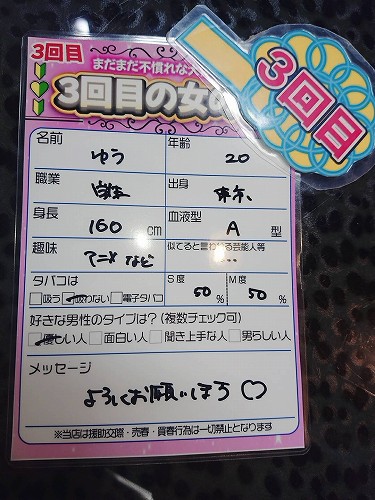 3回目
まだまだ不慣れな
3回目の女の
3回目
名前 ゆう 年齢 20
職業 出身 東京
身長 160 cm 血液型 A 型
趣味 アニメなど 似てると言われる芸能人等 ...
タバコは □吸う □吸わない □電子タバコ S度 50 % M度 50 %
好きな男性のタイプは?(複数チェック可)
□優しい人 □面白い人 □聞き上手な人 □男らしい人
メッセージ
よろしくお願いします♡
※当店は援助交際・売春・買春行為は一切禁止となります